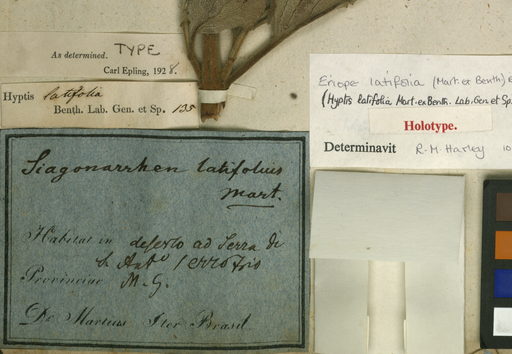 As determined. TYPE
Carl Epling, 1928.
Hyptis latifolia
Benth. Lab. Gen. et Sp. 135
Siagonarrhen latifolius
Mart.
Habitat in deserto ad Serra di
S. Antº / Serro Frio
Provinciae M. G.
Dr Martius Iter Brasil
Eriope latifolia (Mart. ex Benth)
(Hyptis latifolia Mart. ex Benth. Lab. Gen. et Sp.
Holotype.
Determinavit R. M. Harley 10